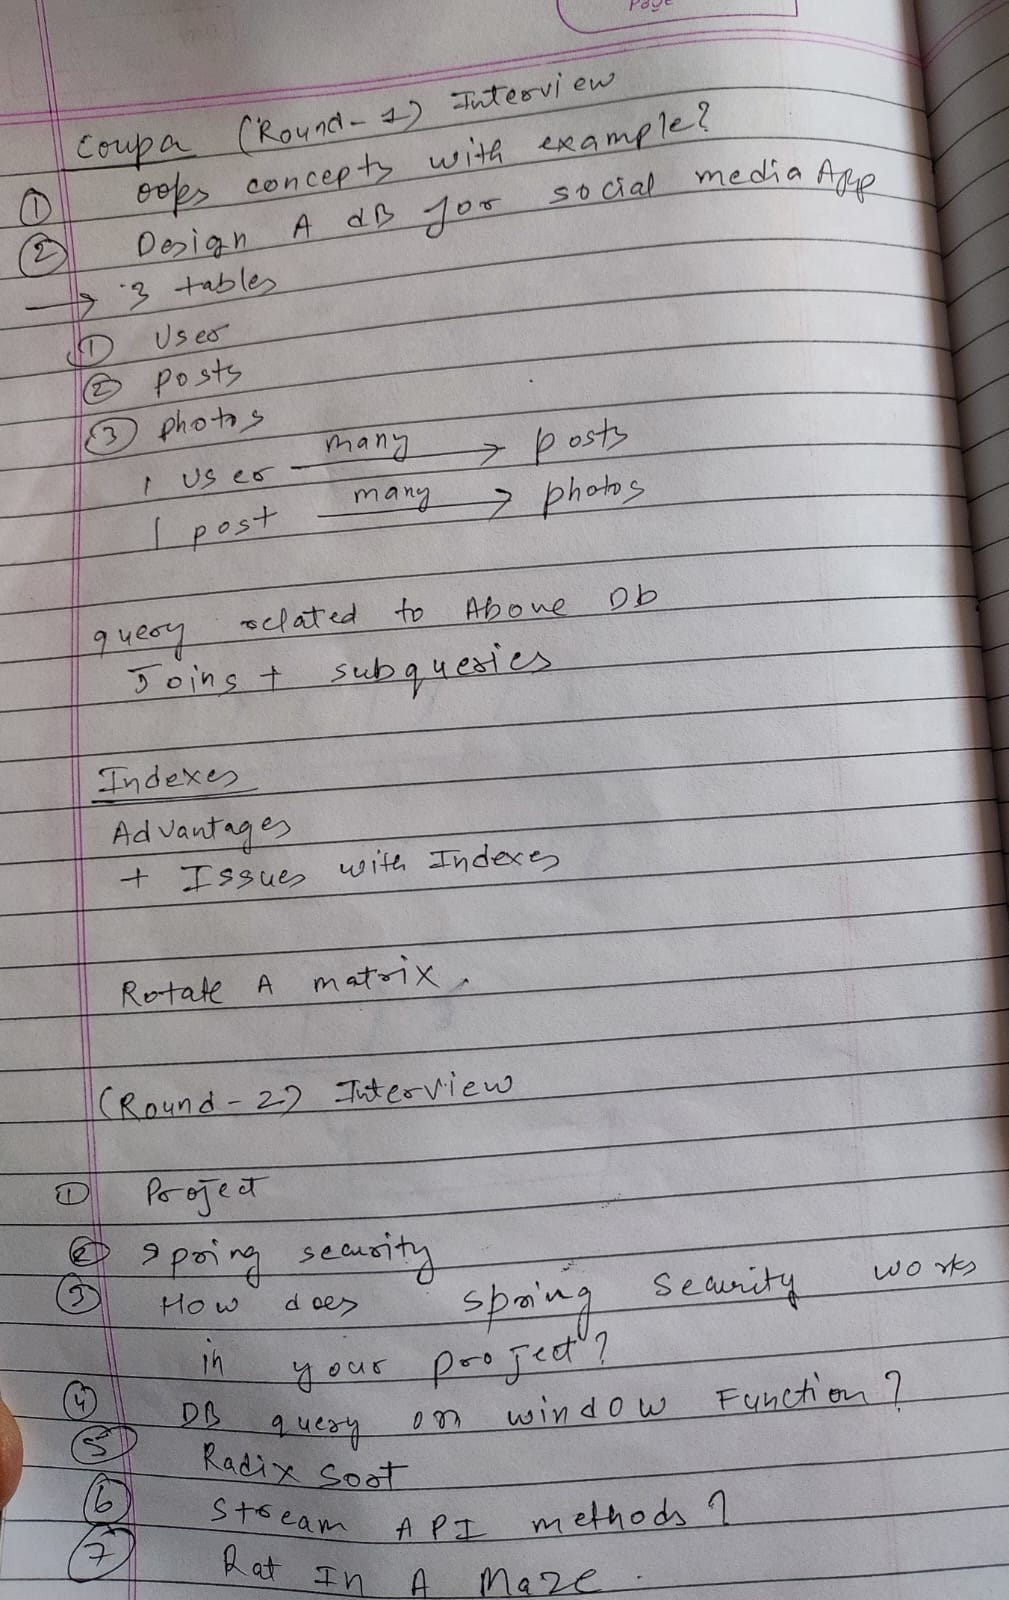 Page
Coupa (Round-1) Interview
① oops concepts with example?
② Design A dB for social media App
→ 3 tables
① User
② posts
③ photos
1 user many → posts
1 post many → photos
query related to Above Db
Joins + subqueries
Indexes
Advantages
+ Issues with Indexes
Rotate A matrix.
(Round-2) Interview
① Project
② spring security
③ How does spring security works
in your project?
④ DB query on window Function?
⑤ Radix Sort
⑥ Stream API methods?
⑦ Rat In A Maze.